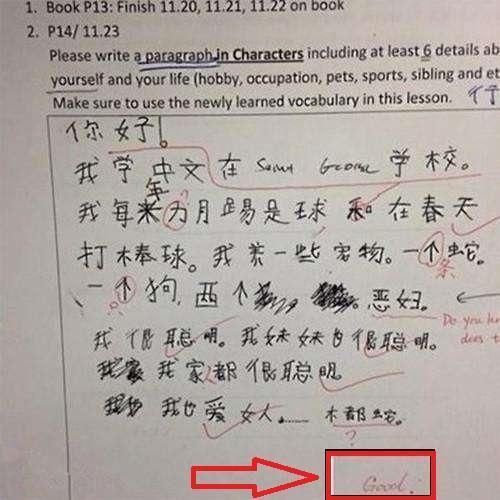 1. Book P13: Finish 11.20, 11.21, 11.22 on book
2. P14/ 11.23
Please write a paragraph in Characters including at least 6 details ab
yourself and your life (hobby, occupation, pets, sports, sibling and et
Make sure to use the newly learned vocabulary in this lesson.
你好!
我学中文在 Saint George 学校。
我每年 力月踢足球 和 在春天
打棒球。我养一些宠物。一个蛇。
条
一个狗, 西个 恶妇。
Do you
does t
我很聪明。我妹妹也很聪明。
我家都很聪明。
我也爱女人...... 木都蛇。
?
Good!